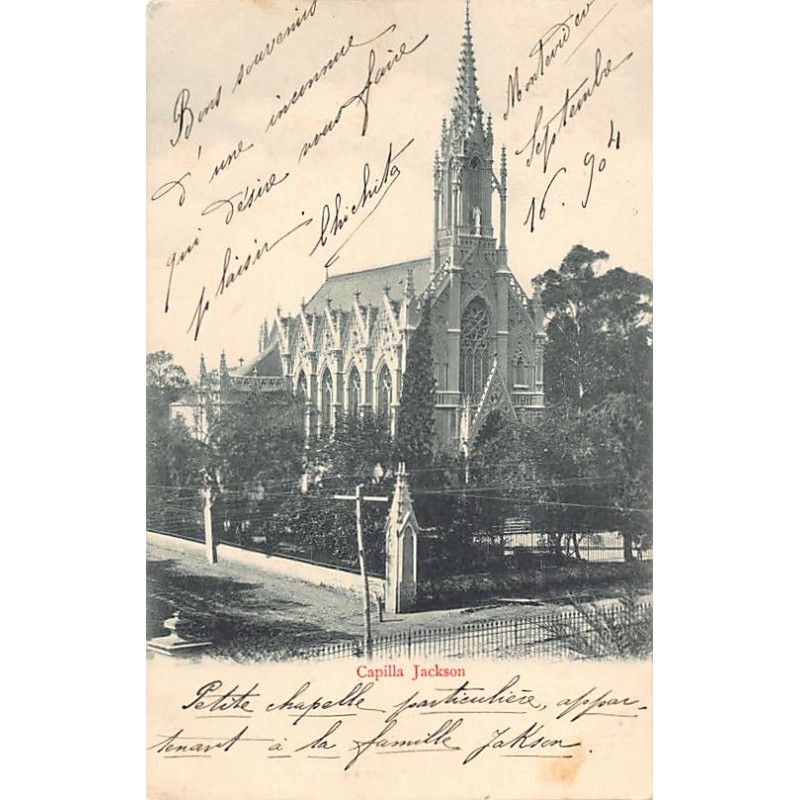 Bons souvenirs
d'une inconnue
qui désire vous faire
plaisir Chichita
Montevideo
Septembre
16. 904
Capilla Jackson
Petite chapelle particulière, appar-
tenant à la famille Jakson.